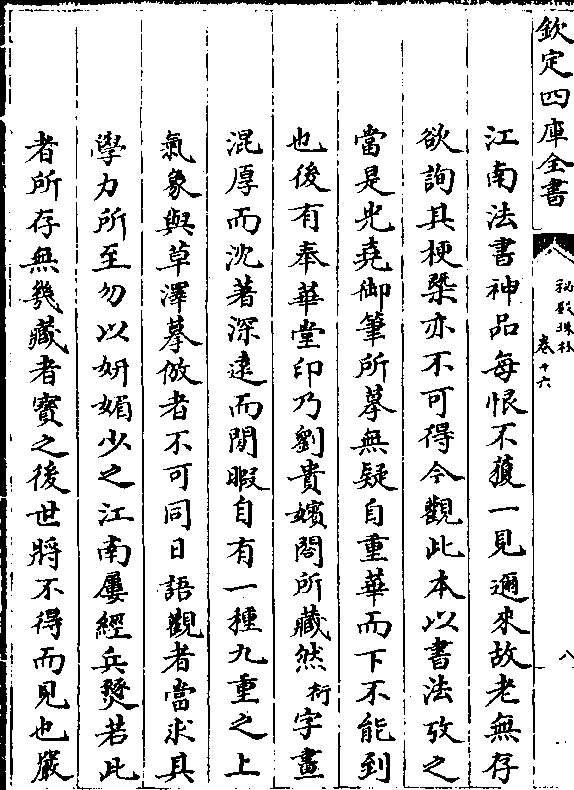 欽定四庫全書
秘殿珠林
卷十六
八
江南法書神品每恨不獲一見邇來故老無存
欲詢其梗槩亦不可得今觀此本以書法攷之
當是光堯御筆所摹無疑自重華而下不能到
也後有奉華堂印乃劉貴嬪閣所藏然衍字畫
混厚而沈著深遠而閒暇自有一種九重之上
氣象與草澤摹倣者不可同日語觀者當求其
學力所至勿以妍媚少之江南屢經兵燹若此
者所存無幾藏者寳之後世將不得而見也嚴